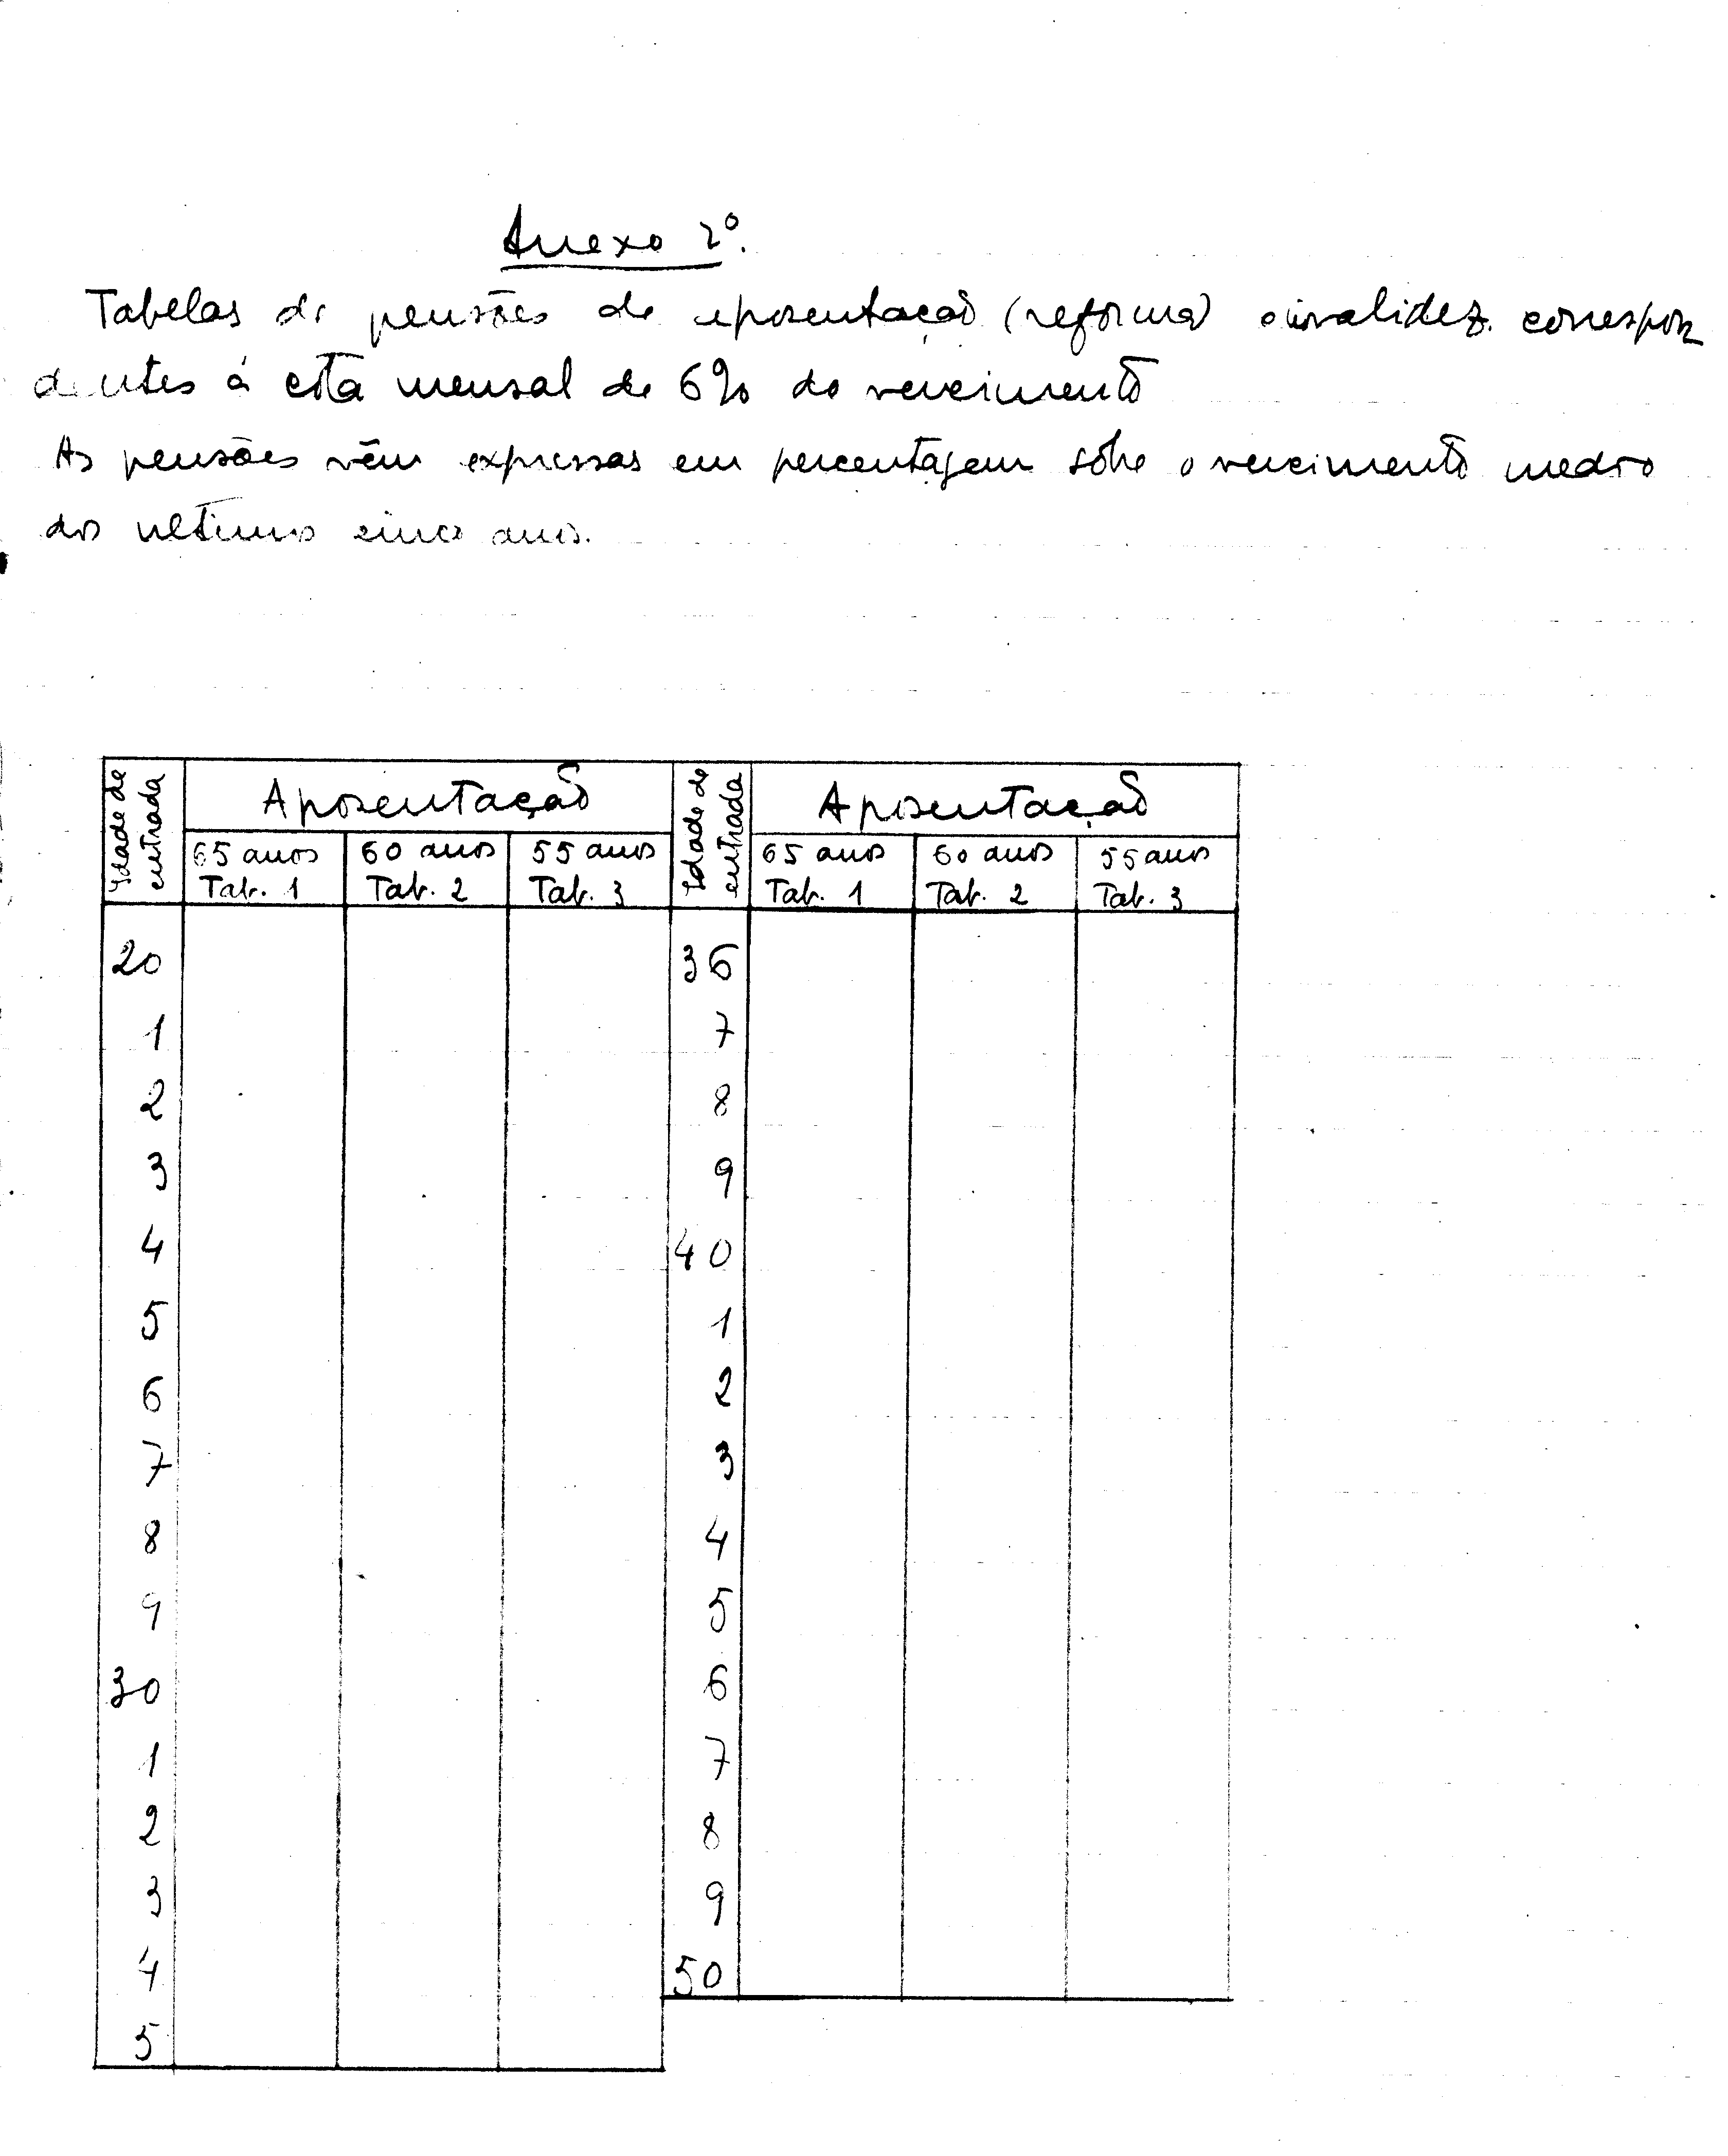 Anexo 2º.
Tabelas de pensões de aposentação (reforma) e invalidez correspon
dentes à cota mensal de 6% do vencimento
As pensões vêm expressas em percentagem sôbre o vencimento medio
dos ultimos cinco anos.
Idade de entrada Aposentação Idade de entrada Aposentação
65 anos 60 anos 55 anos 65 anos 60 anos 55 anos
Tab. 1 Tab. 2 Tab. 3 Tab. 1 Tab. 2 Tab. 3
20 36
1 7
2 8
3 9
4 40
5 1
6 2
7 3
8 4
9 5
30 6
1 7
2 8
3 9
4 50
5